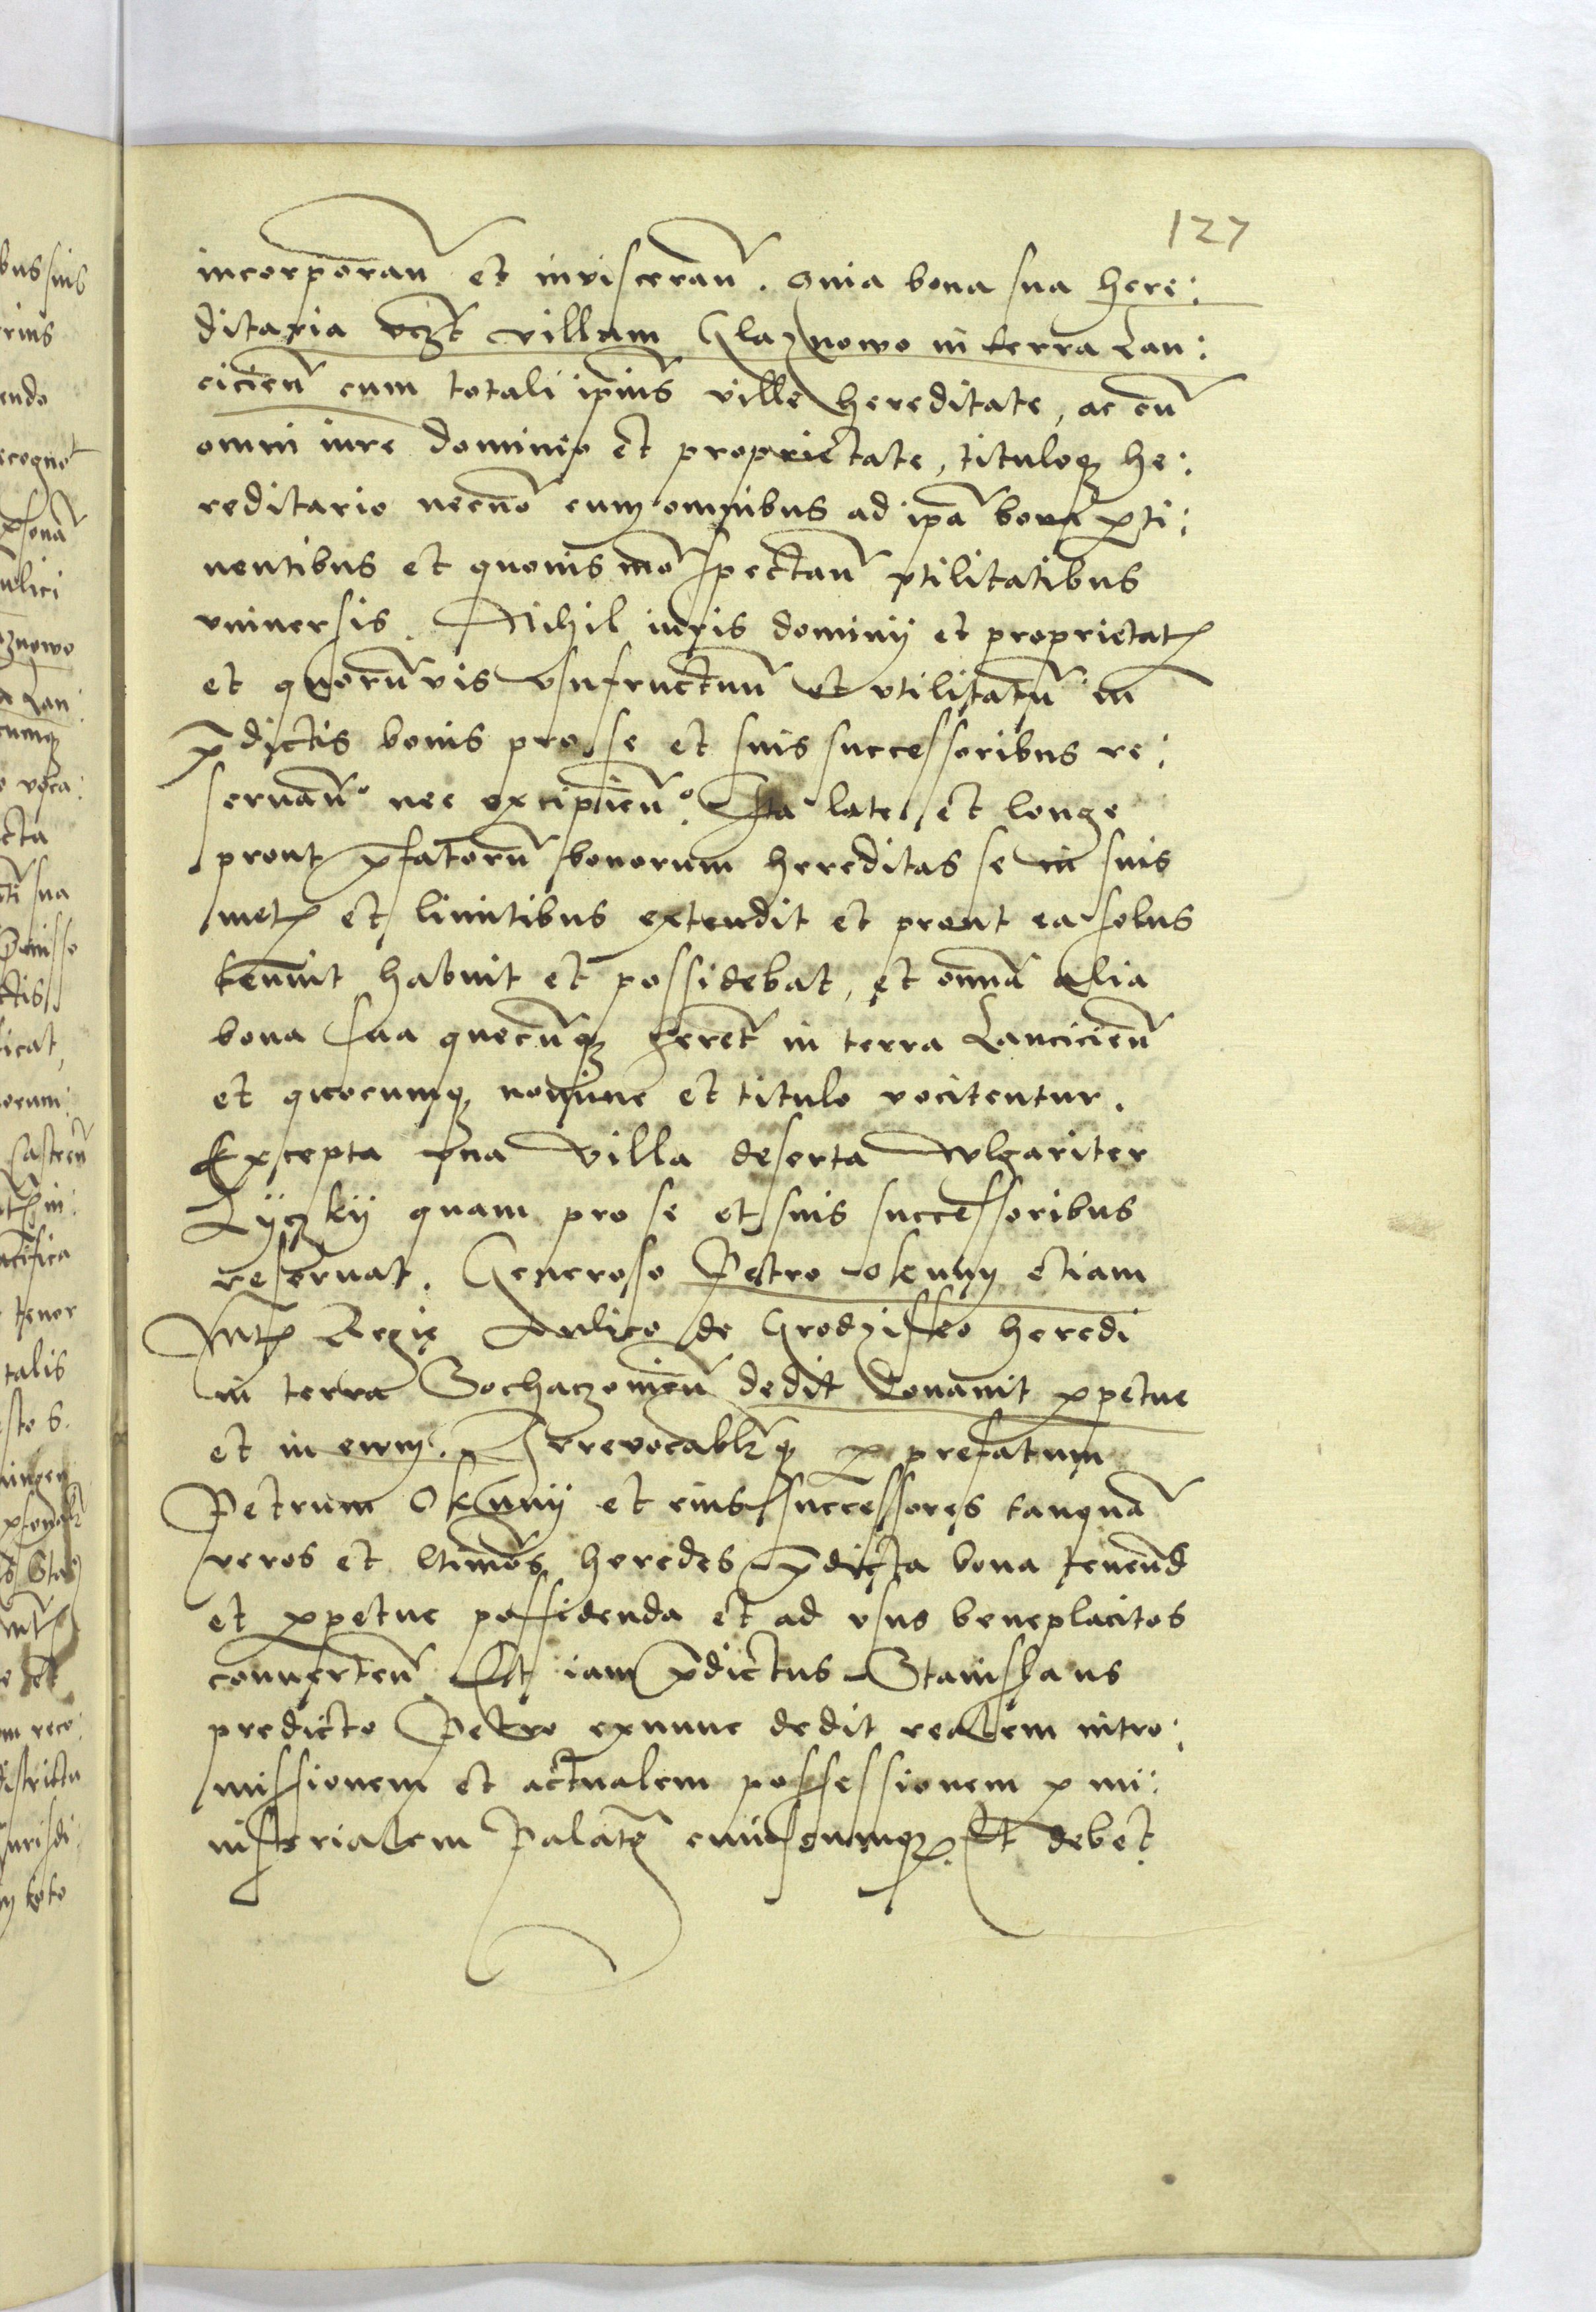 127
incorporan̄ et inviscеran̄. Om̄ia bona sua here:
ditaria vcz̄t villam Glaznowo in terra Lan:
cicien̄ cum totali ip̄ius ville hereditate, ac cū
omni iure dominio et proprietate, tituloqꝫ he:
reditario necno̅ cum omnibus ad ip̄a bona ꝑti:
nentibus et quovis mo̅ spectan̄ vtilitatibus
vniversis. Nihil iuris dominij et proprietatꝭ
et quoru̅vis vsufructuu̅ et vtilitatu̅ in
p̄dictis bonis pro se et suis successoribus re:
servan̄º nec excipien̄º. Ita late et longe
prout p̄fatoru̅ bonorum hereditas se in suis
metꝭ et limitibus extendit et prout ea solus
tenuit habuit et possidebat, et omnia alia
bona sua quecu̅qꝫ heret̄ in terra Lancicien̄
et quocumqꝫ nomine et titulo vocitentur.
Excepta vna villa deserta vulgariter
Lÿczkij quam pro se et suis successoribus
reservat. Generoso Petro Okuny etiam
Mtꝭ Regię Aulico de Grodzisko heredi
in terra Sochaczovien̄ dedit donavit ꝑpetue
et in evum. Irrevocabl̄rqꝫ ꝑ prefatum
Petrum Okunij et eius successores tanqua̅
veros et l̄timos heredes p̄dicta bona tenend̄
et ꝑpetue possidenda et ad vsus beneplacitos
conuerten̄ Et iam p̄dictus Stanislaus
predicto Petro exnunc dedit realem intro:
missionem et actualem possessionem ꝑ mi:
nisterialem Palatꝭ cuiuscumqꝫ. Et debet